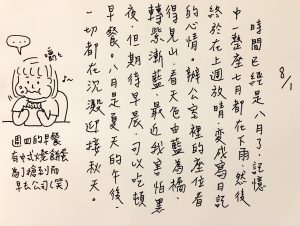 8/1
時間已經是八月了,記憶
中,整座七月都在下雨,然後
終於在上週放晴,變成寫日記
的心情。辦公室裡的座位看
得見山,看天色由藍為橘、
轉紫漸藍,最近我害怕黑
夜,但期待早晨,可以吃頓
早餐。八月是夏天的午後,
一切都在沉澱迎接秋天。
...
週四的早餐
有中式燒餅餐
為了搶到而
早去公司(笑)